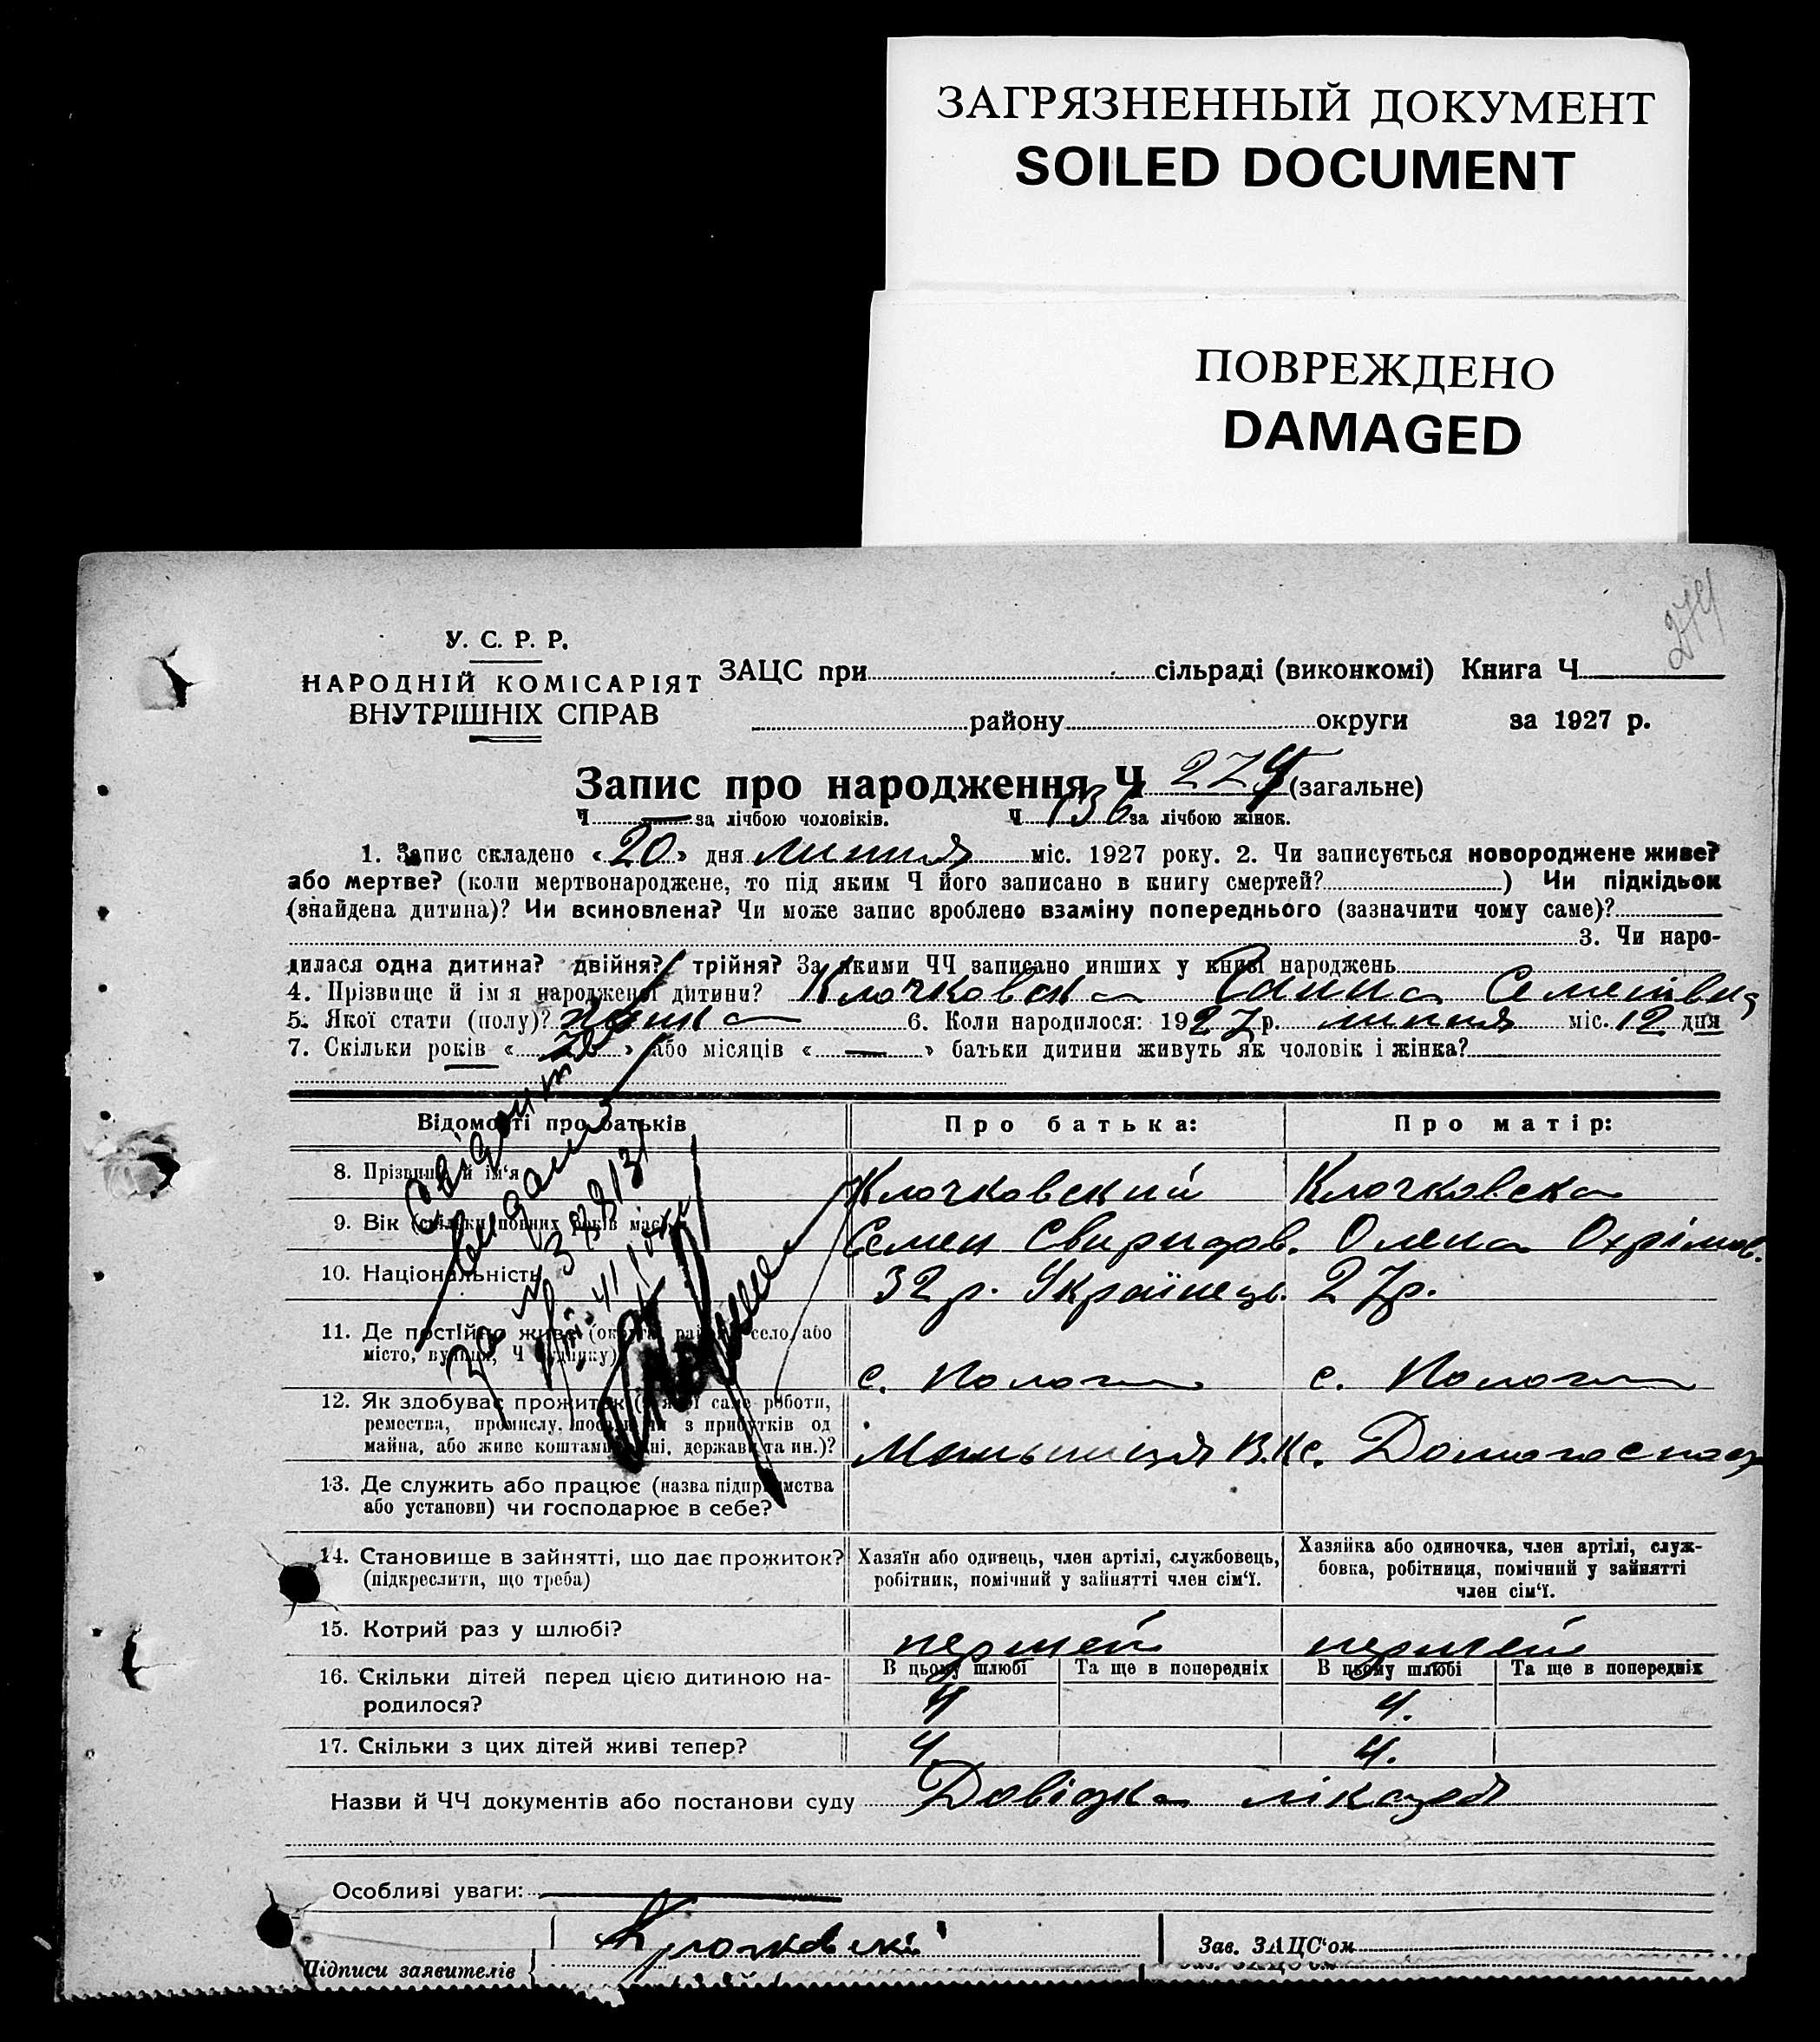 ЗАГРЯЗНЕННЫЙ ДОКУМЕНТ
SOILED DOCUMENT
ПОВРЕЖДЕНО
DAMAGED
274
У. С. Р. Р.
НАРОДНІЙ КОМІСАРІЯТ
ВНУТРІШНІХ СПРАВ
ЗАЦС при сільраді (виконкомі) Книга Ч
району округи за 1927 р.
Запис про народження Ч 274 (загальне)
Ч — за лічбою чоловіків. Ч 136 за лічбою жінок.
1. Запис складено « 20 » дня липня міс. 1927 року. 2. Чи записується новороджене живе?
або мертве? (коли мертвонароджене, то під яким Ч його записано в книгу смертей? ) Чи підкідьок
(знайдена дитина)? Чи всиновлена? Чи може запис зроблено взаміну попереднього (зазначити чому саме)?
3. Чи наро-
дилася одна дитина? двійня? трійня? За якими ЧЧ записано инших у книзі народжень
4. Прізвище й ім'я народженої дитини? Клочковська Семенівна
5. Якої стати (полу)? жінка 6. Коли народилося: 1927 р. липня міс. 12 дня
7. Скільки років « » або місяців « — » батьки дитини живуть як чоловік і жінка?
Відомості про батьків
Про батька:
Про матір:
8. Прізвище й ім'я
Клочковский
Клочковска
9. Вік (скільки повних років має)
Семен Свиридов.
Олена Охрімов.
10. Національність
32 р. Українець.
27р.
11. Де постійно живе (округа, район, село, або
місто, вулиця, Ч будинку)
с. Пологи
с. Пологи
12. Як здобуває прожиток (з якої саме роботи,
ремества, промислу, посади чи з прибутків од
майна, або живе коштами рідні, держави та ин.)?
Домогоспод
13. Де служить або працює (назва підприємства
або установи) чи господарює в себе?
14. Становище в зайнятті, що дає прожиток?
(підкреслити, що треба)
Хазяїн або одинець, член артілі, службовець,
робітник, помічний у зайнятті член сім'ї.
Хазяйка або одиночка, член артілі, служ-
бовка, робітниця, помічний у зайнятті
член сім'ї.
15. Котрий раз у шлюбі?
першей
першей
16. Скільки дітей перед цією дитиною на-
родилося?
В цьому шлюбі
Та ще в попередніх
В цьому шлюбі
Та ще в попередніх
4
4.
17. Скільки з цих дітей живі тепер?
4.
4.
Назви й ЧЧ документів або постанови суду Довідка лікаря
Особливі уваги:
Підписи заявителів
Клочковскі
Зав. ЗАЦС'ом
Свідоцтво
видано
за №